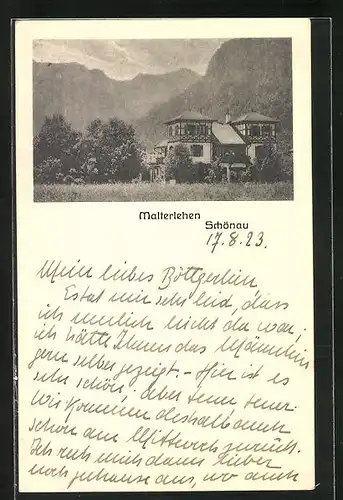 Malterlehen
Schönau
17.8.23.
Mein liebes Böttgerlein,
Es tat mir sehr leid, dass
ich neulich nicht da war;
ich hätte Ihnen das
gern selber gezeigt. – Hier ist es
sehr schön, aber
Wir kommen deshalb auch
schon am Mittwoch zurück.
Ich ruh mich dann lieber
noch zuhause aus, wo auch